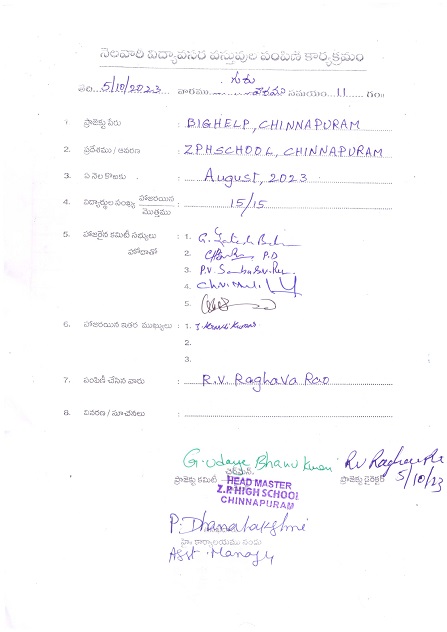 నెలవారి విద్యావసర వస్తువుల పంపిణి కార్యక్రమం
తేది 5/10/2023 వారము గురు వారము సమయం 11 గం॥
1. ప్రాజెక్టు పేరు : BIGHELP, CHINNAPURAM
2. ప్రదేశము / ఆవరణ : ZPHSCHOOL, CHINNAPURAM
3. ఏ నెల కొఱకు : August, 2023
4. విద్యార్థుల సంఖ్య హాజరయిన / మొత్తము : 15/15
5. హాజరైన కమిటీ సభ్యులు : 1.
హోదాతో 2. P.D
3. P.V.
4.
5.
6. హాజరయిన ఇతర ముఖ్యులు : 1.
2.
3.
7. పంపిణీ చేసిన వారు : R.V. Raghava Rao
8. వివరణ / సూచనలు :
G. Udaya Bhanu Kumari R.V. Raghava Ra
ప్రాజెక్టు కమిటీ చైర్మన్ ప్రాజెక్టు డైరెక్టర్ 5/10/23
HEAD MASTER
Z.P. HIGH SCHOOL
CHINNAPURAM
P. Dhanalakshmi
హెడ్ కార్యాలయము నందు
Asst. Manager